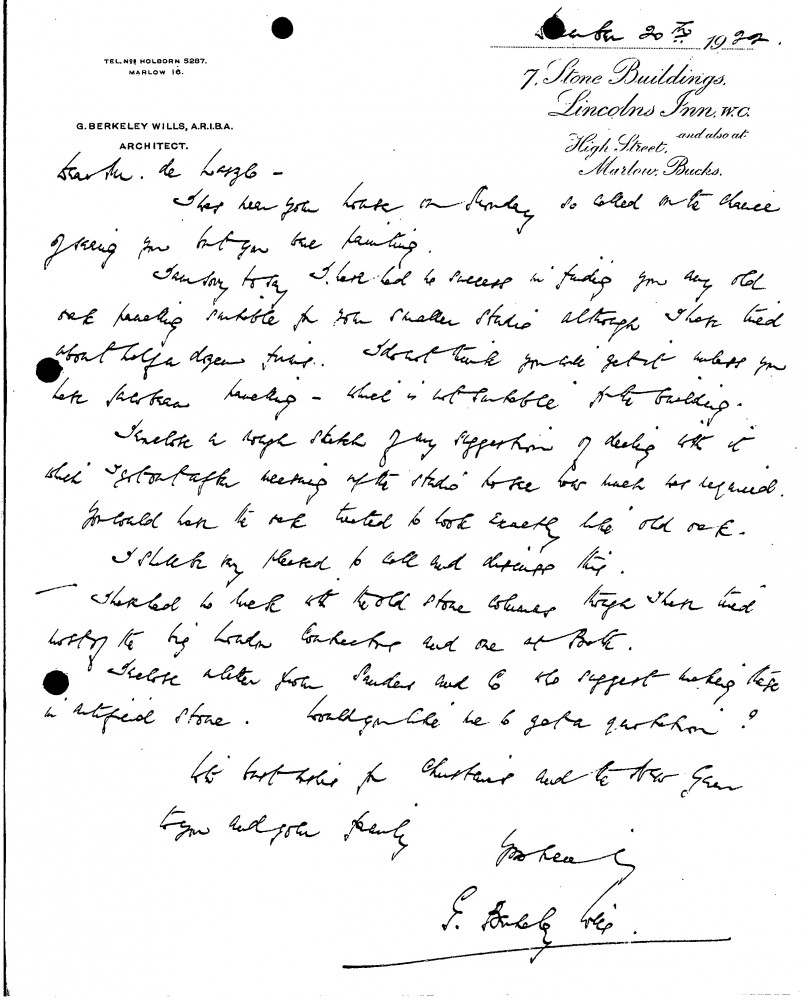 December 20th 1922.
TEL. Nos HOLBORN 5287.
MARLOW 16.
7, Stone Buildings,
Lincolns Inn, W.C.
and also at
High Street,
Marlow, Bucks.
G. BERKELEY WILLS, A.R.I.B.A.
ARCHITECT.
Dear Mr. de Laszlo –
I was near your house on Monday so called on the chance
of seeing you but you were painting.
I am sorry to say I have had no success in finding you any old
oak panelling suitable for your smaller studio although I have tried
about half a dozen firms. I do not think you will get it unless you
have Jacobean panelling – which is not suitable for the building.
I enclose a rough sketch of my suggestion of dealing with it
which I got out after measuring up the studio to see how much was required.
You could have the oak treated to look exactly like old oak.
I shall be very pleased to call and discuss this.
I have had no luck with the old stone columns though I have tried
most of the big London Contractors and one at Bath.
I enclose a letter from Sanders and Co who suggest making these
in artificial stone. Would you like me to get a quotation?
With best wishes for Christmas and the New Year
to you and your family
Yours sincerely
G. Berkeley Wills.